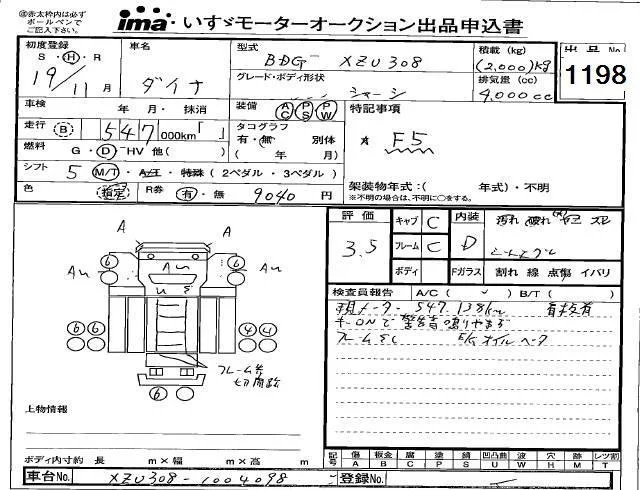 ※赤太枠内は必ず
ボールペンで
ご記入下さい。
ima いすゞモーターオークション出品申込書
初度登録 車名 型式 BDG-XZU308 積載 (kg) 出品No.
S・H・R 19/11月 ダイナ (2,000)kg 1198
グレード・ボディ形状 シャーシ 排気量 (cc) 4,000cc
車検 年 月・抹消 装備 AC PS PW 特記事項
走行 B 547,000km「 」 タコグラフ
有・無 別体 F5
燃料 G・D・HV 他( ) ( 年 月)
シフト 5 M/T・A/T・特殊(2ペダル・3ペダル)
架装物年式:( 年式)・不明
色 指定 R券 有・無 9040円 ※不明の場合は、不明に○をする。
評価 3.5 キャブ C 内装 D 汚れ 破れ ヤケ スレ
フレーム C
ボディ Fガラス 割れ 線 点傷 イバリ
検査員報告 A/C( ) B/T( )
現メーター 547,138km
キーONで警告音鳴りやまず
フレームサビ E/gオイルベーク
A A
Aツ Aツ Aツ
6 6
6 6 4 4
6
フレーム等
切開跡
上物情報
ボディ内寸約 長 m×幅 m×高 m
記号 傷 A 板金 B 腐 C 塗 P 錆 S 凹凸曲 U 波 W 穴 H 跡 M レツ割 T
車台No. XZU308-1004098 登録No.